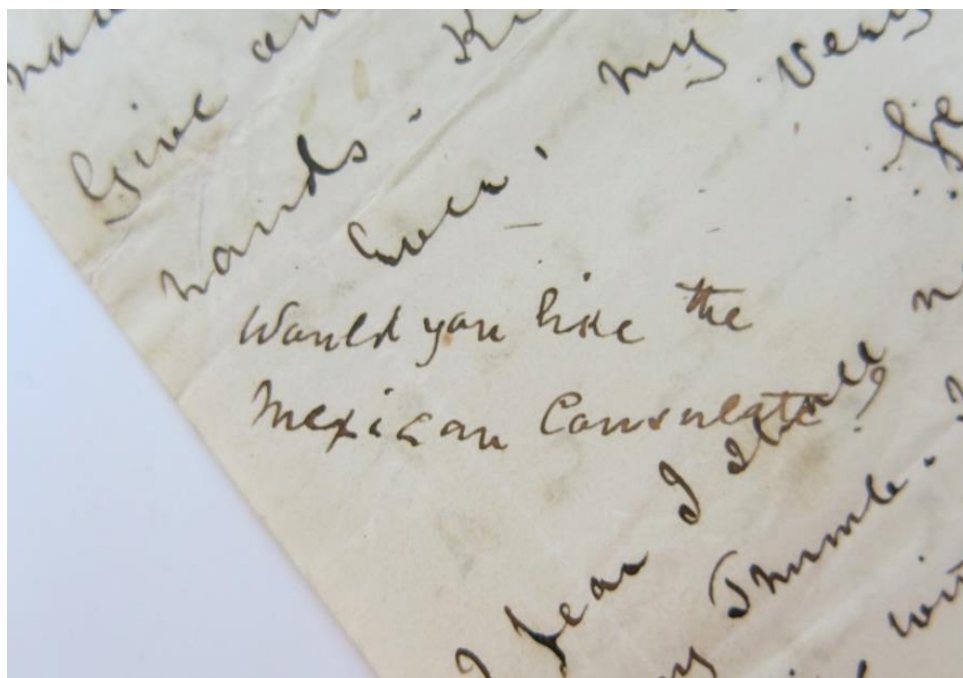 Give an
hands.
Ever, my very
Would you like the
Mexican Consulate?
I fear I shall
my Thumb.